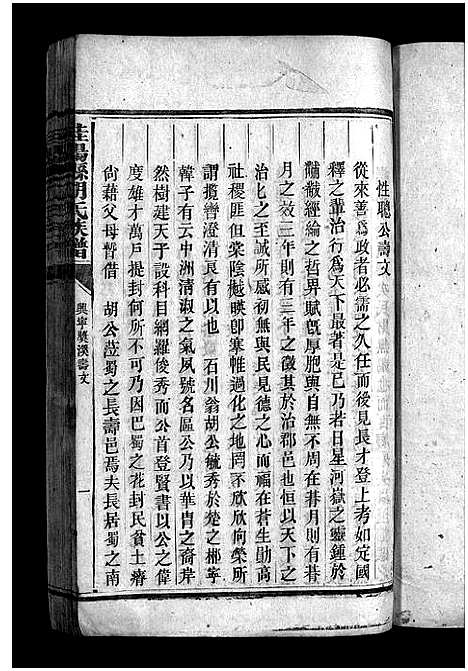 性聰公壽文
從來善爲政者必需之久任而後見長才登上考如定國
釋之輩治行爲天下最著是已乃若日星河嶽之靈鍾於
黼黻經綸之哲畀賦旣厚胞與自無不周在朞月則有朞
月之效三年則有三年之徵其於治郡邑也恒以天下之
治化之至誠所感初無與民見德之心而福在蒼生勛高
社稷匪但棠陰樾暎卽寒帷過化之地罔不欣欣向榮所
謂攬轡澄清良有以也 石川翁胡公毓秀於楚之郴寧
韓子有云中洲清淑之氣夙號名區公乃以華冑之裔岸
然樹建天于設科目網羅俊秀而公首登賢書以公之偉
度雄才萬戶提封何所不可乃因巴蜀之花封民貧土瘠
尙藉父母暫借 胡公蒞蜀之長壽邑焉夫長居蜀之南
桂陽縣胡氏族譜
興寧獎溪壽文
一